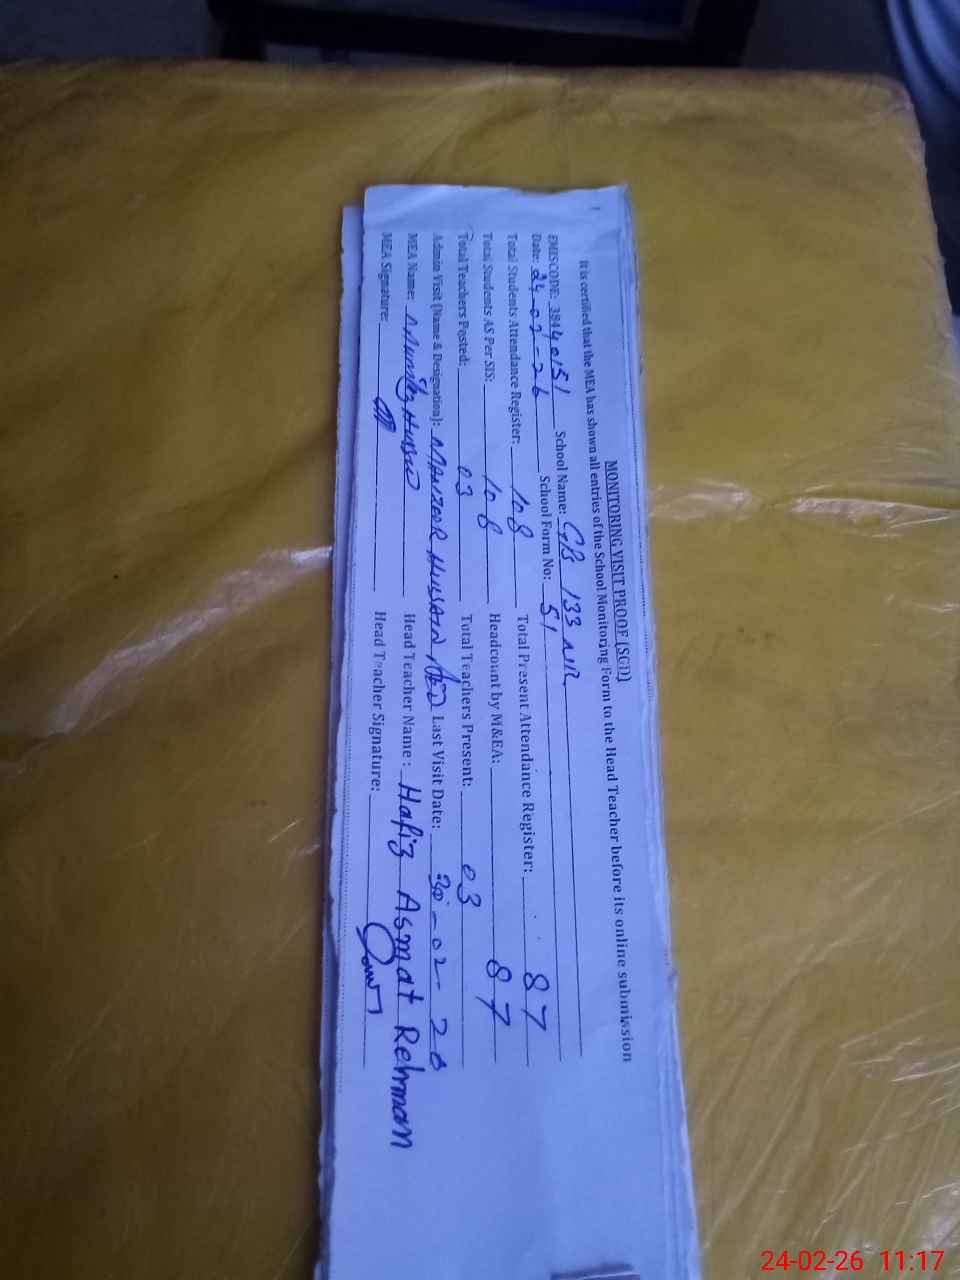 MONITORING VISIT PROOF [SGD]
It is certified that the MEA has shown all entries of the School Monitoring Form to the Head Teacher before its online submission
EMISCODE: 38440151 School Name: GB 133 NB
Date: 24-02-26 School Form No: 51
Total Students Attendance Register: 108 Total Present Attendance Register: 87
Total Students AS Per SIS: 108 Headcount by M&EA: 87
Total Teachers Posted: 03 Total Teachers Present: 03
Admin Visit (Name & Designation): MANZOOR HUSSAIN Last Visit Date:
MEA Name: Head Teacher Name: Hafiz Asmat Rehman
MEA Signature: Head Teacher Signature:
24-02-26 11:17